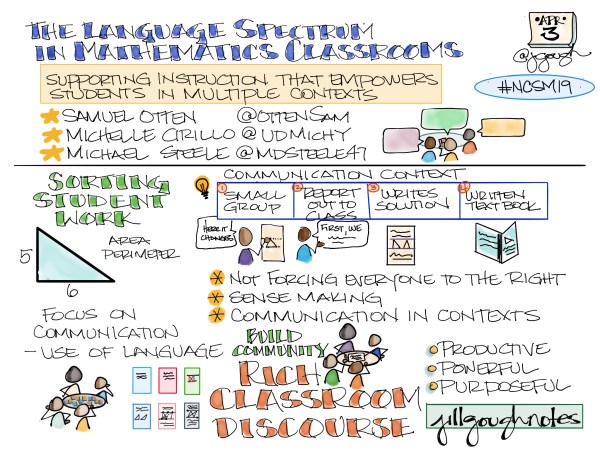 THE LANGUAGE SPECTRUM
IN MATHEMATICS CLASSROOMS
•APR•
3
@jgough
SUPPORTING INSTRUCTION THAT EMPOWERS
STUDENTS IN MULTIPLE CONTEXTS
#NCSM19
SAMUEL OTTEN @OTTENSAM
MICHELLE CIRILLO @UDMICHY
MICHAEL STEELE @MDSTEELE47
SORTING
STUDENT
WORK
COMMUNICATION CONTEXT
1 SMALL
GROUP
2 REPORT
OUT TO
CLASS
3 WRITES
SOLUTION
4 WRITTEN
TEXT BOOK
HERE IT
CHANGES
FIRST, WE
AREA
PERIMETER
5
6
NOT FORCING EVERYONE TO THE RIGHT
SENSE MAKING
COMMUNICATION IN CONTEXTS
FOCUS ON
COMMUNICATION
- USE OF LANGUAGE
BUILD
COMMUNITY
RICH
CLASSROOM
DISCOURSE
PRODUCTIVE
POWERFUL
PURPOSEFUL
jillgoughnotes